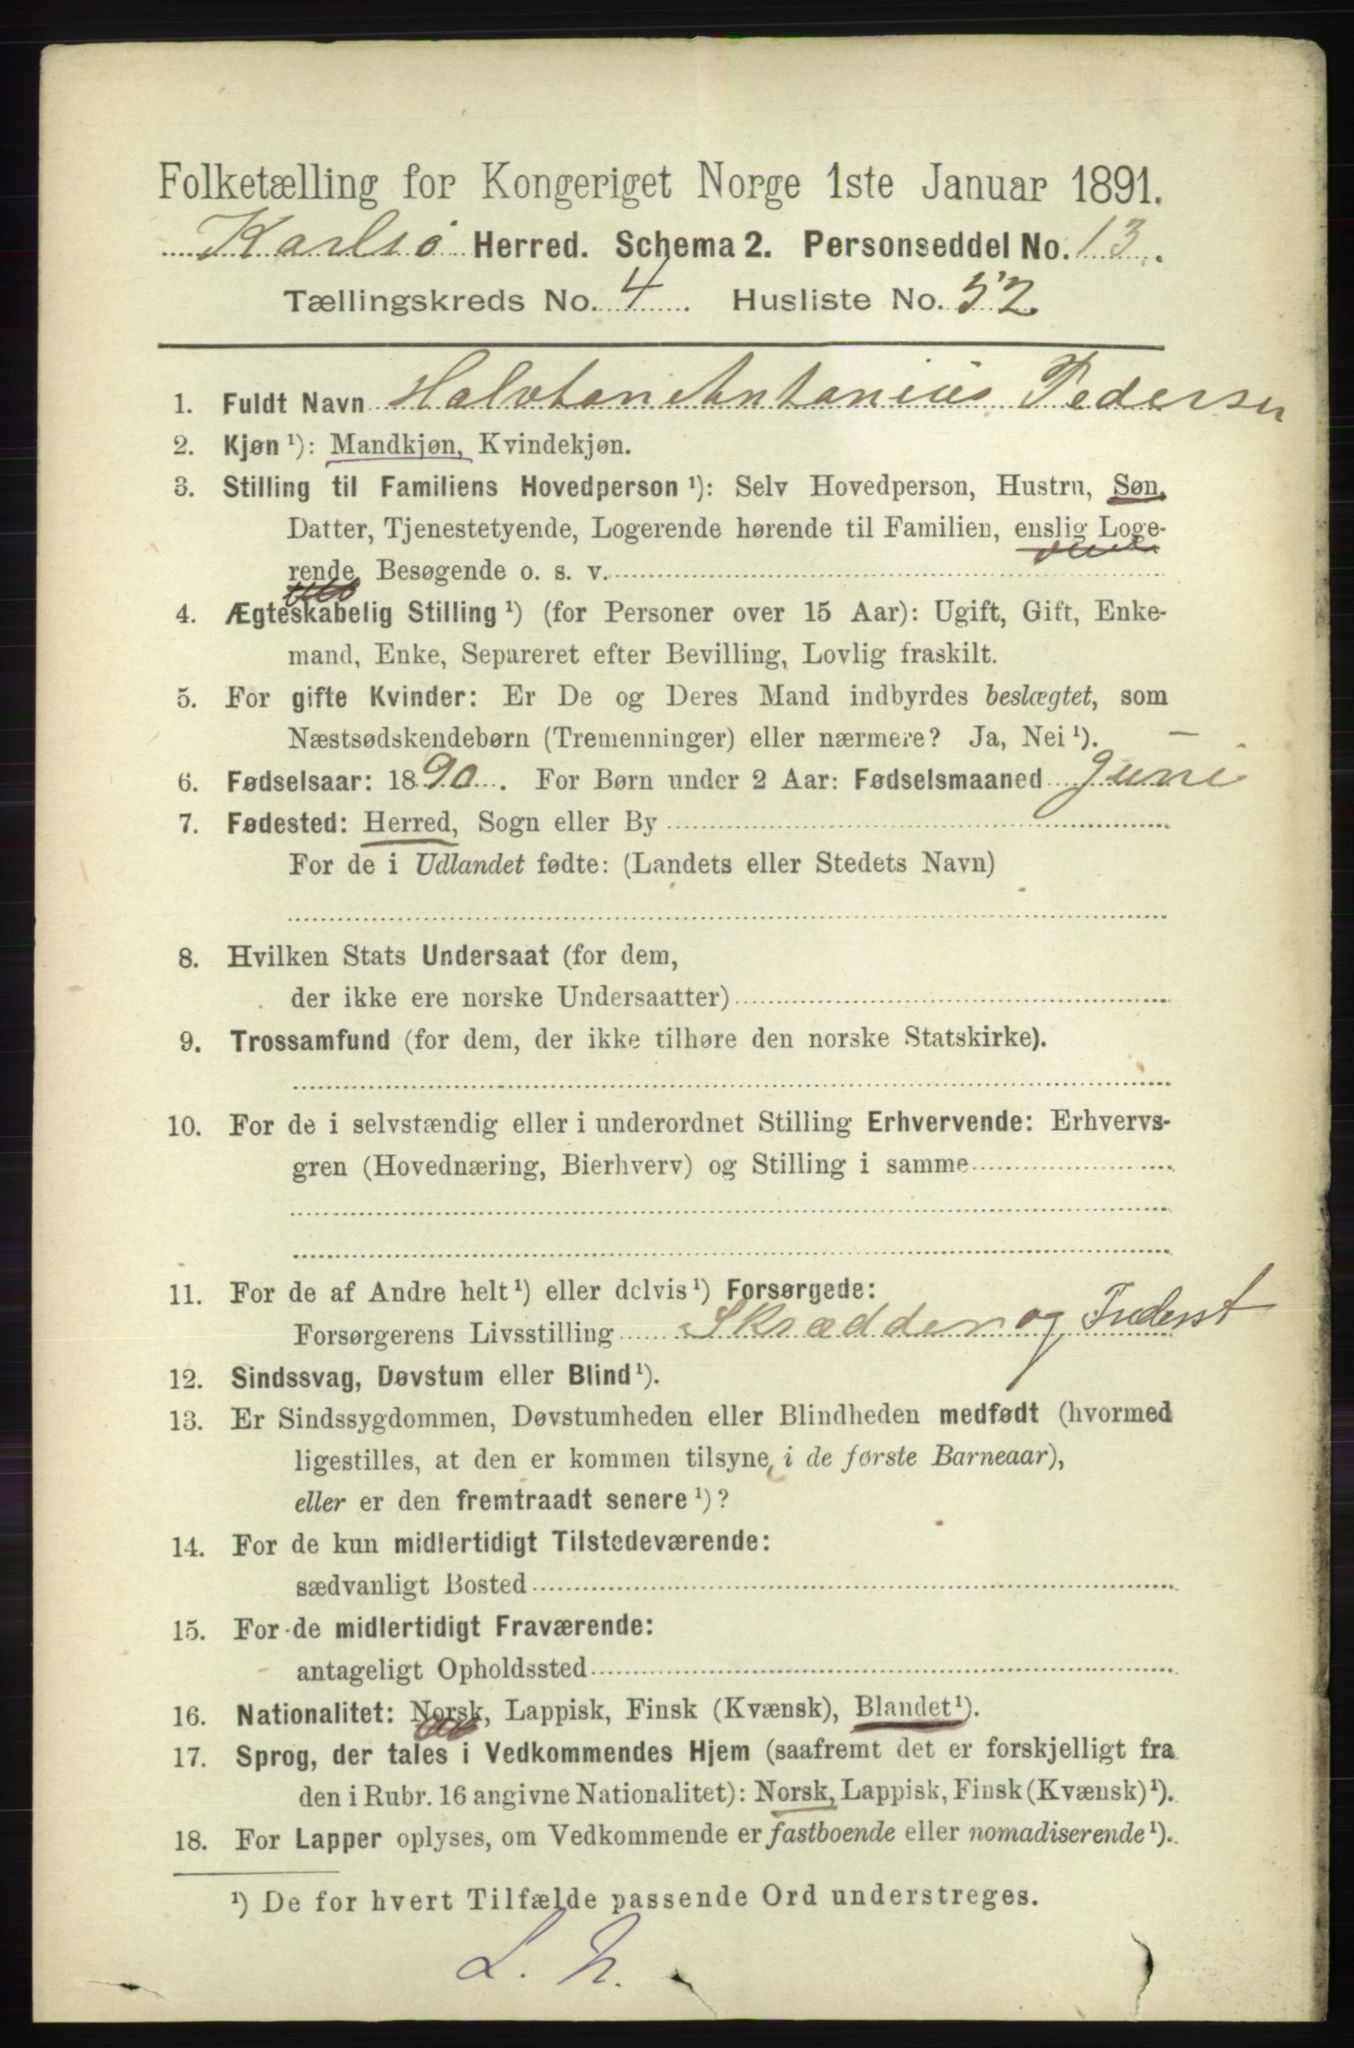 Folketælling for Kongeriget Norge 1ste Januar 1891.
Karlsö Herred. Schema 2. Personseddel No. 13.
Tællingskreds No. 4. Husliste No. 52
1. Fuldt Navn Halvtan Antonius Pedersen
2. Kjøn ¹): Mandkjøn, Kvindekjøn.
3. Stilling til Familiens Hovedperson ¹): Selv Hovedperson, Hustru, Søn,
Datter, Tjenestetyende, Logerende hørende til Familien, enslig Loge-
rende, Besøgende o. s. v.
4. Ægteskabelig Stilling ¹) (for Personer over 15 Aar): Ugift, Gift, Enke-
mand, Enke, Separeret efter Bevilling, Lovlig fraskilt.
5. For gifte Kvinder: Er De og Deres Mand indbyrdes beslægtet, som
Næstsødskendebørn (Tremenninger) eller nærmere? Ja, Nei ¹).
6. Fødselsaar: 1890. For Børn under 2 Aar: Fødselsmaaned Juni
7. Fødested: Herred, Sogn eller By
For de i Udlandet fødte: (Landets eller Stedets Navn)
8. Hvilken Stats Undersaat (for dem,
der ikke ere norske Undersaatter)
9. Trossamfund (for dem, der ikke tilhøre den norske Statskirke).
10. For de i selvstændig eller i underordnet Stilling Erhvervende: Erhvervs-
gren (Hovednæring, Bierhverv) og Stilling i samme
11. For de af Andre helt ¹) eller delvis ¹) Forsørgede:
Forsørgerens Livsstilling Skrædder og
12. Sindssvag, Døvstum eller Blind ¹).
13. Er Sindssygdommen, Døvstumheden eller Blindheden medfødt (hvormed
ligestilles, at den er kommen tilsyne i de første Barneaar),
eller er den fremtraadt senere ¹)?
14. For de kun midlertidigt Tilstedeværende:
sædvanligt Bosted
15. For de midlertidigt Fraværende:
antageligt Opholdssted
16. Nationalitet: Norsk, Lappisk, Finsk (Kvænsk), Blandet ¹).
17. Sprog, der tales i Vedkommendes Hjem (saafremt det er forskjelligt fra
den i Rubr. 16 angivne Nationalitet): Norsk, Lappisk, Finsk (Kvænsk) ¹).
18. For Lapper oplyses, om Vedkommende er fastboende eller nomadiserende ¹).
¹) De for hvert Tilfælde passende Ord understreges.
L. N.